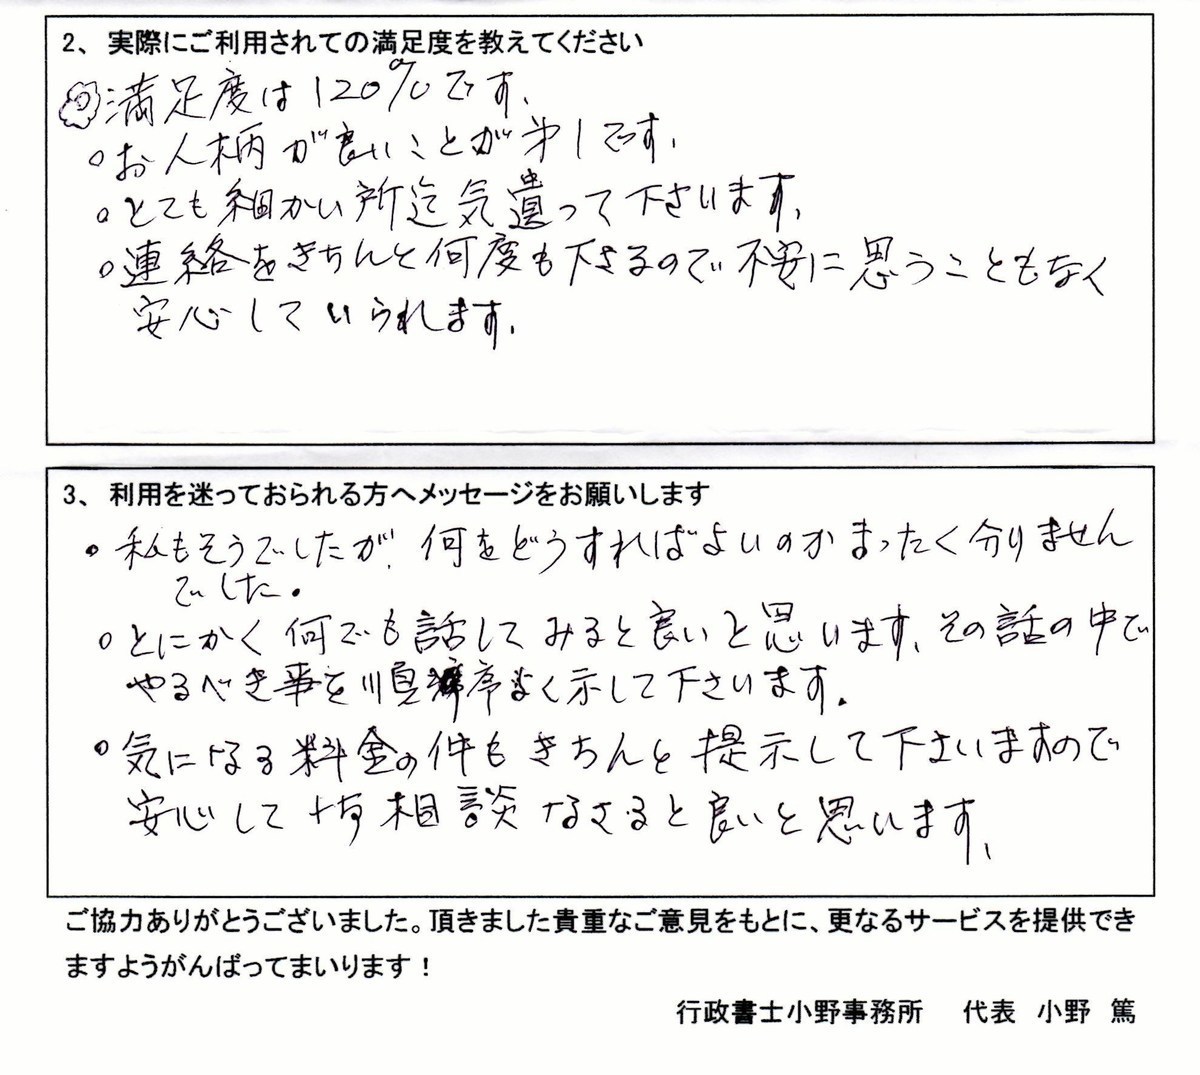 2、 実際にご利用されての満足度を教えてください
◎満足度は120%です、
○お人柄が良いことが㐧1です、
○とても細かい所迄気遣って下さいます、
○連絡をきちんと何度も下さるので不安に思うこともなく
安心していられます、
3、 利用を迷っておられる方へメッセージをお願いします
・私もそうでしたが、何をどうすればよいのかまったく分りません
でした。
○とにかく何でも話してみると良いと思います、その話の中で
やるべき事を順序よく示して下さいます。
○気になる料金の件もきちんと提示して下さいますので
安心して 相談なさると良いと思います、
ご協力ありがとうございました。頂きました貴重なご意見をもとに、更なるサービスを提供でき
ますようがんばってまいります！
行政書士小野事務所 代表 小野 篤